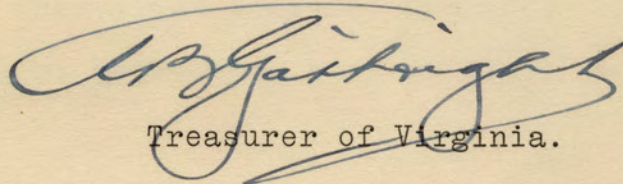 A B Gathright
Treasurer of Virginia.